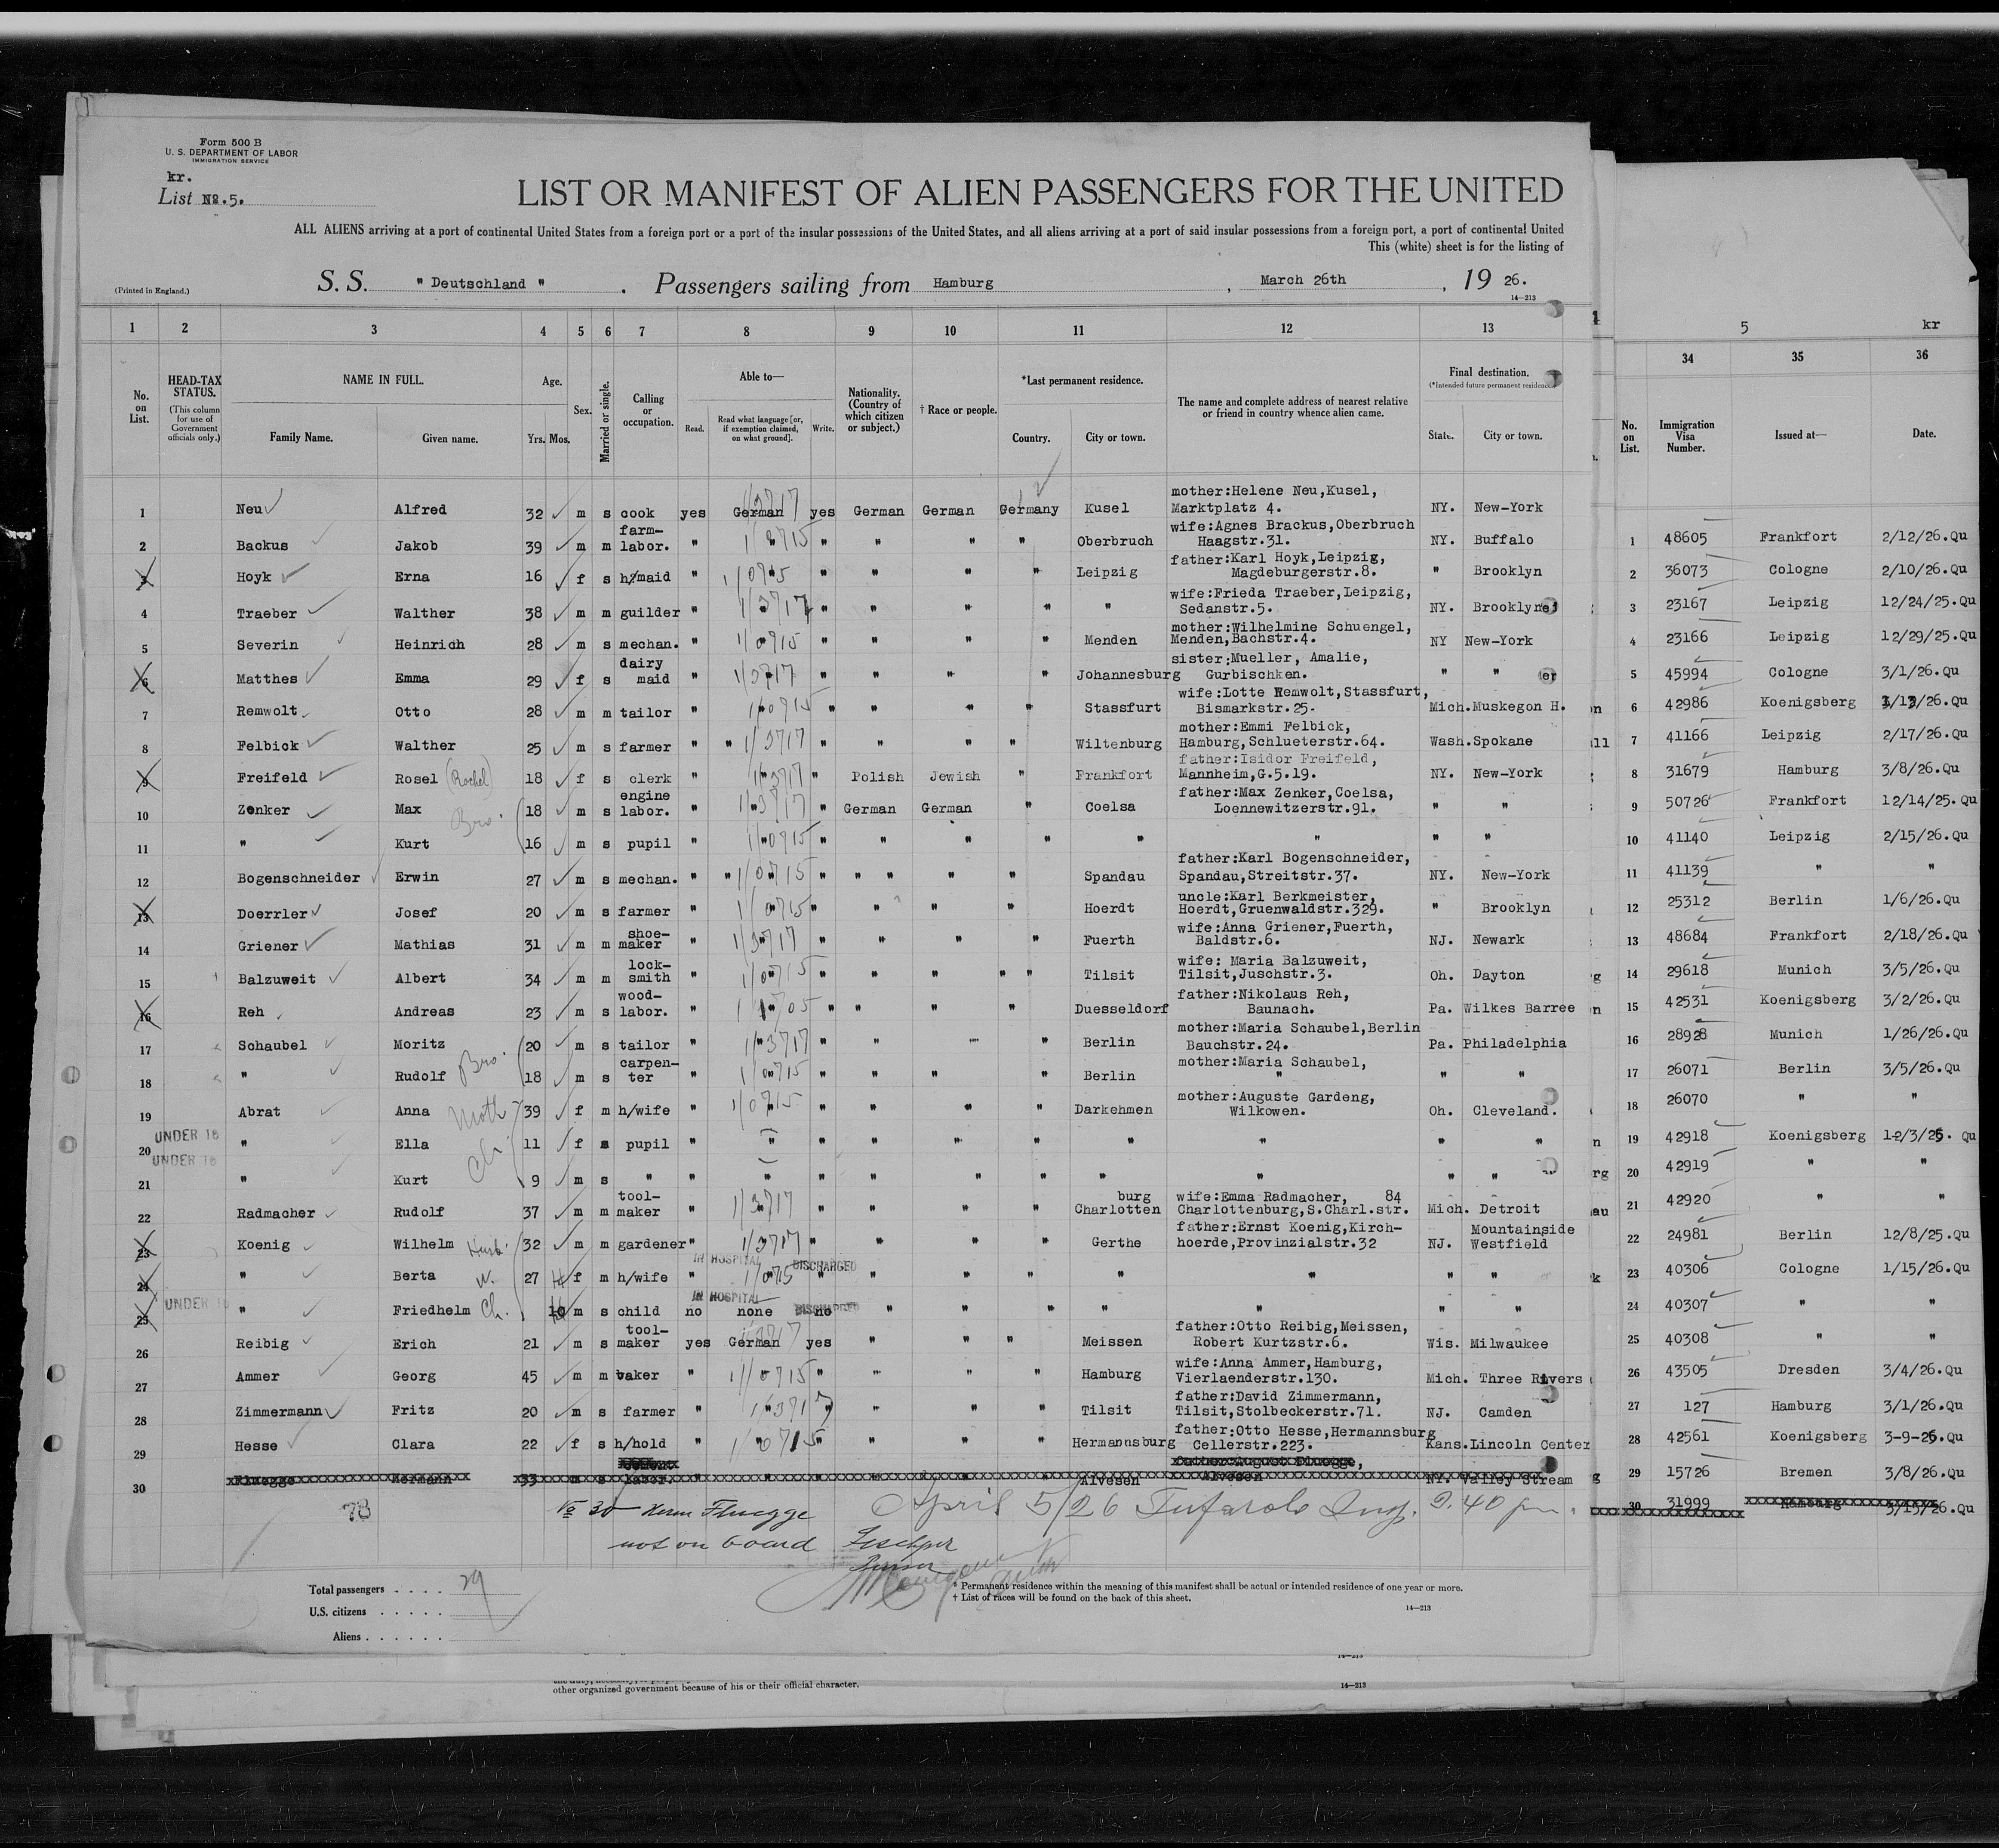 Form 500 B
U. S. DEPARTMENT OF LABOR
IMMIGRATION SERVICE
kr.
List No. 5.
LIST OR MANIFEST OF ALIEN PASSENGERS FOR THE UNITED
ALL ALIENS arriving at a port of continental United States from a foreign port or a port of the insular possessions of the United States, and all aliens arriving at a port of said insular possessions from a foreign port, a port of continental United
This (white) sheet is for the listing of
(Printed in England.)
S. S. " Deutschland " . Passengers sailing from Hamburg , March 26th , 19 26.
14—213
1 2 3 4 5 6 7 8 9 10 11 12 13
No. on List.
HEAD-TAX STATUS.
(This column for use of Government officials only.)
NAME IN FULL.
Family Name. Given name.
Age.
Yrs. Mos.
Sex.
Married or single.
Calling or occupation.
Able to—
Read. Read what language [or, if exemption claimed, on what ground]. Write.
Nationality. (Country of which citizen or subject.)
† Race or people.
*Last permanent residence.
Country. City or town.
The name and complete address of nearest relative or friend in country whence alien came.
Final destination.
(*Intended future permanent residence.)
State. City or town.
1 Neu Alfred 32 m s cook yes German yes German German Germany Kusel mother:Helene Neu,Kusel, Marktplatz 4. NY. New-York
2 Backus Jakob 39 m m farm-labor. " " " " " " Oberbruch wife:Agnes Brackus,Oberbruch Haagstr.31. NY. Buffalo
3 Hoyk Erna 16 f s h/maid " " " " " " Leipzig father:Karl Hoyk,Leipzig, Magdeburgerstr.8. " Brooklyn
4 Traeber Walther 38 m m guilder " " " " " " " wife:Frieda Traeber,Leipzig, Sedanstr.5. NY. Brooklyn
5 Severin Heinrich 28 m s mechan. " " " " " " Menden mother:Wilhelmine Schuengel, Menden,Bachstr.4. NY New-York
6 Matthes Emma 29 f s dairy maid " " " " " " Johannesburg sister:Mueller, Amalie, Gurbischken. " "
7 Remwolt Otto 28 m m tailor " " " " " " Stassfurt wife:Lotte Remwolt,Stassfurt, Bismarkstr.25. Mich. Muskegon H.
8 Felbick Walther 25 m s farmer " " " " " " Wiltenburg mother:Emmi Felbick, Hamburg,Schlueterstr.64. Wash. Spokane
9 Freifeld Rosel (Rachel) 18 f s clerk " " " Polish Jewish " Frankfort father:Isidor Freifeld, Mannheim,G.5.19. NY. New-York
10 Zenker Max Bro. 18 m s engine labor. " " " German German " Coelsa father:Max Zenker,Coelsa, Loennewitzerstr.91. " "
11 " Kurt 16 m s pupil " " " " " " " " " "
12 Bogenschneider Erwin 27 m s mechan. " " " " " " Spandau father:Karl Bogenschneider, Spandau,Streitstr.37. NY. New-York
13 Doerrler Josef 20 m s farmer " " " " " " Hoerdt uncle:Karl Berkmeister, Hoerdt,Gruenwaldstr.329. " Brooklyn
14 Griener Mathias 31 m m shoe-maker " " " " " " Fuerth wife:Anna Griener,Fuerth, Baldstr.6. NJ. Newark
15 Balzuweit Albert 34 m m lock-smith " " " " " " Tilsit wife: Maria Balzuweit, Tilsit,Juschstr.3. Oh. Dayton
16 Reh Andreas 23 m s wood-labor. " " " " " " Duesseldorf father:Nikolaus Reh, Baunach. Pa. Wilkes Barree
17 Schaubel Moritz Bro. 20 m s tailor " " " " " " Berlin mother:Maria Schaubel,Berlin Bauchstr.24. Pa. Philadelphia
18 " Rudolf 18 m s carpen-ter " " " " " " Berlin mother:Maria Schaubel, " " "
19 Abrat Anna Moth 39 f m h/wife " " " " " " Darkehmen mother:Auguste Gardeng, Wilkowen. Oh. Cleveland.
20 UNDER 16 " Ella Ch. 11 f s pupil " " " " " " " " " "
21 UNDER 16 " Kurt 9 m s " " " " " " " " " " "
22 Radmacher Rudolf 37 m m tool-maker " " " " " " Charlottenburg wife:Emma Radmacher, 84 Charlottenburg,S.Charl.str. Mich. Detroit
23 Koenig Wilhelm Husb. 32 m m gardener " " " " " " Gerthe father:Ernst Koenig,Kirch-hoerde,Provinzialstr.32 NJ. Mountainside Westfield
IN HOSPITAL DISCHARGED
24 " Berta W. 27 f m h/wife " " " " " " " " " "
IN HOSPITAL DISCHARGED
25 UNDER 16 " Friedhelm Ch. m s child no none no " " " " " " "
26 Reibig Erich 21 m s tool-maker yes German yes " " " Meissen father:Otto Reibig,Meissen, Robert Kurtzstr.6. Wis. Milwaukee
27 Ammer Georg 45 m m baker " " " " " " Hamburg wife:Anna Ammer,Hamburg, Vierlaenderstr.130. Mich. Three Rivers
28 Zimmermann Fritz 20 m s farmer " " " " " " Tilsit father:David Zimmermann, Tilsit,Stolbeckerstr.71. NJ. Camden
29 Hesse Clara 22 f s h/hold " " " " " " Hermannsburg father:Otto Hesse,Hermannsburg Cellerstr.223. Kans. Lincoln Center
30 Fluegge Hermann 33 m s labor. " " " " " " Alvesen father:August Fluegge, Alvesen NY. Valley Stream
78
No 30 Herm Fluegge April 5/26 Tufarolo Insp. 9.40 pm.
not on board
Total passengers . . . . 29
U.S. citizens . . . . .
Aliens . . . . . .
* Permanent residence within the meaning of this manifest shall be actual or intended residence of one year or more.
† List of races will be found on the back of this sheet.
14—213
other organized government because of his or their official character.
14—213
5 kr
34 35 36
No. on List. Immigration Visa Number. Issued at— Date.
1 48605 Frankfort 2/12/26.Qu
2 36073 Cologne 2/10/26.Qu
3 23167 Leipzig 12/24/25.Qu
4 23166 Leipzig 12/29/25.Qu
5 45994 Cologne 3/1/26.Qu
6 42986 Koenigsberg /26.Qu
7 41166 Leipzig 2/17/26.Qu
8 31679 Hamburg 3/8/26.Qu
9 50726 Frankfort 12/14/25.Qu
10 41140 Leipzig 2/15/26.Qu
11 41139 " "
12 25312 Berlin 1/6/26.Qu
13 48684 Frankfort 2/18/26.Qu
14 29618 Munich 3/5/26.Qu
15 42531 Koenigsberg 3/2/26.Qu
16 28928 Munich 1/26/26.Qu
17 26071 Berlin 3/5/26.Qu
18 26070 " "
19 42918 Koenigsberg 12/3/25. Qu
20 42919 " "
21 42920 " "
22 24981 Berlin 12/8/25.Qu
23 40306 Cologne 1/15/26.Qu
24 40307 " "
25 40308 " "
26 43505 Dresden 3/4/26.Qu
27 127 Hamburg 3/1/26.Qu
28 42561 Koenigsberg 3-9-26.Qu
29 15726 Bremen 3/8/26.Qu
30 31999 Hamburg 3/15/26.Qu